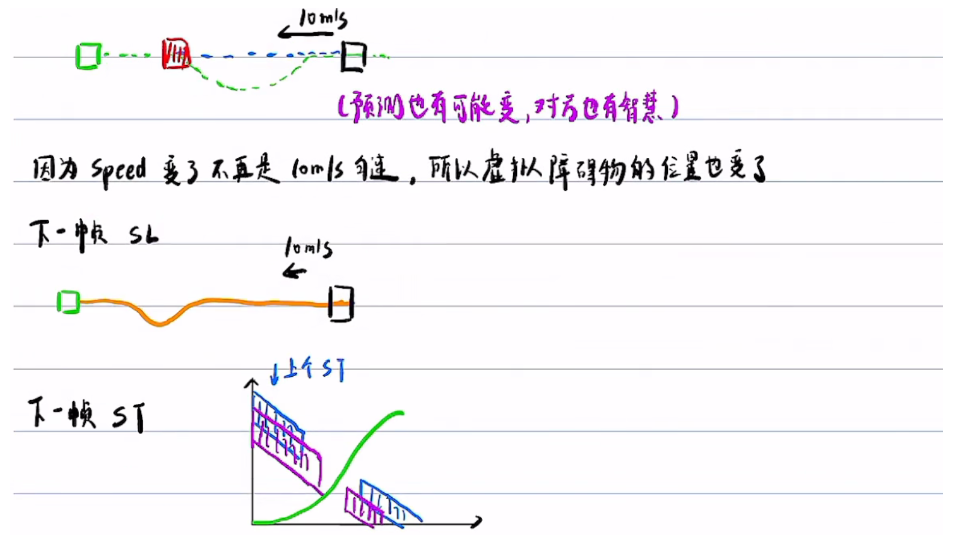 10m/s
(预测也有可能变,对方也有智慧)
因为 Speed 变了不再是 10m/s 匀速,所以虚拟障碍物的位置也变了
下一帧 SL
10m/s
↓上个ST
下一帧 ST